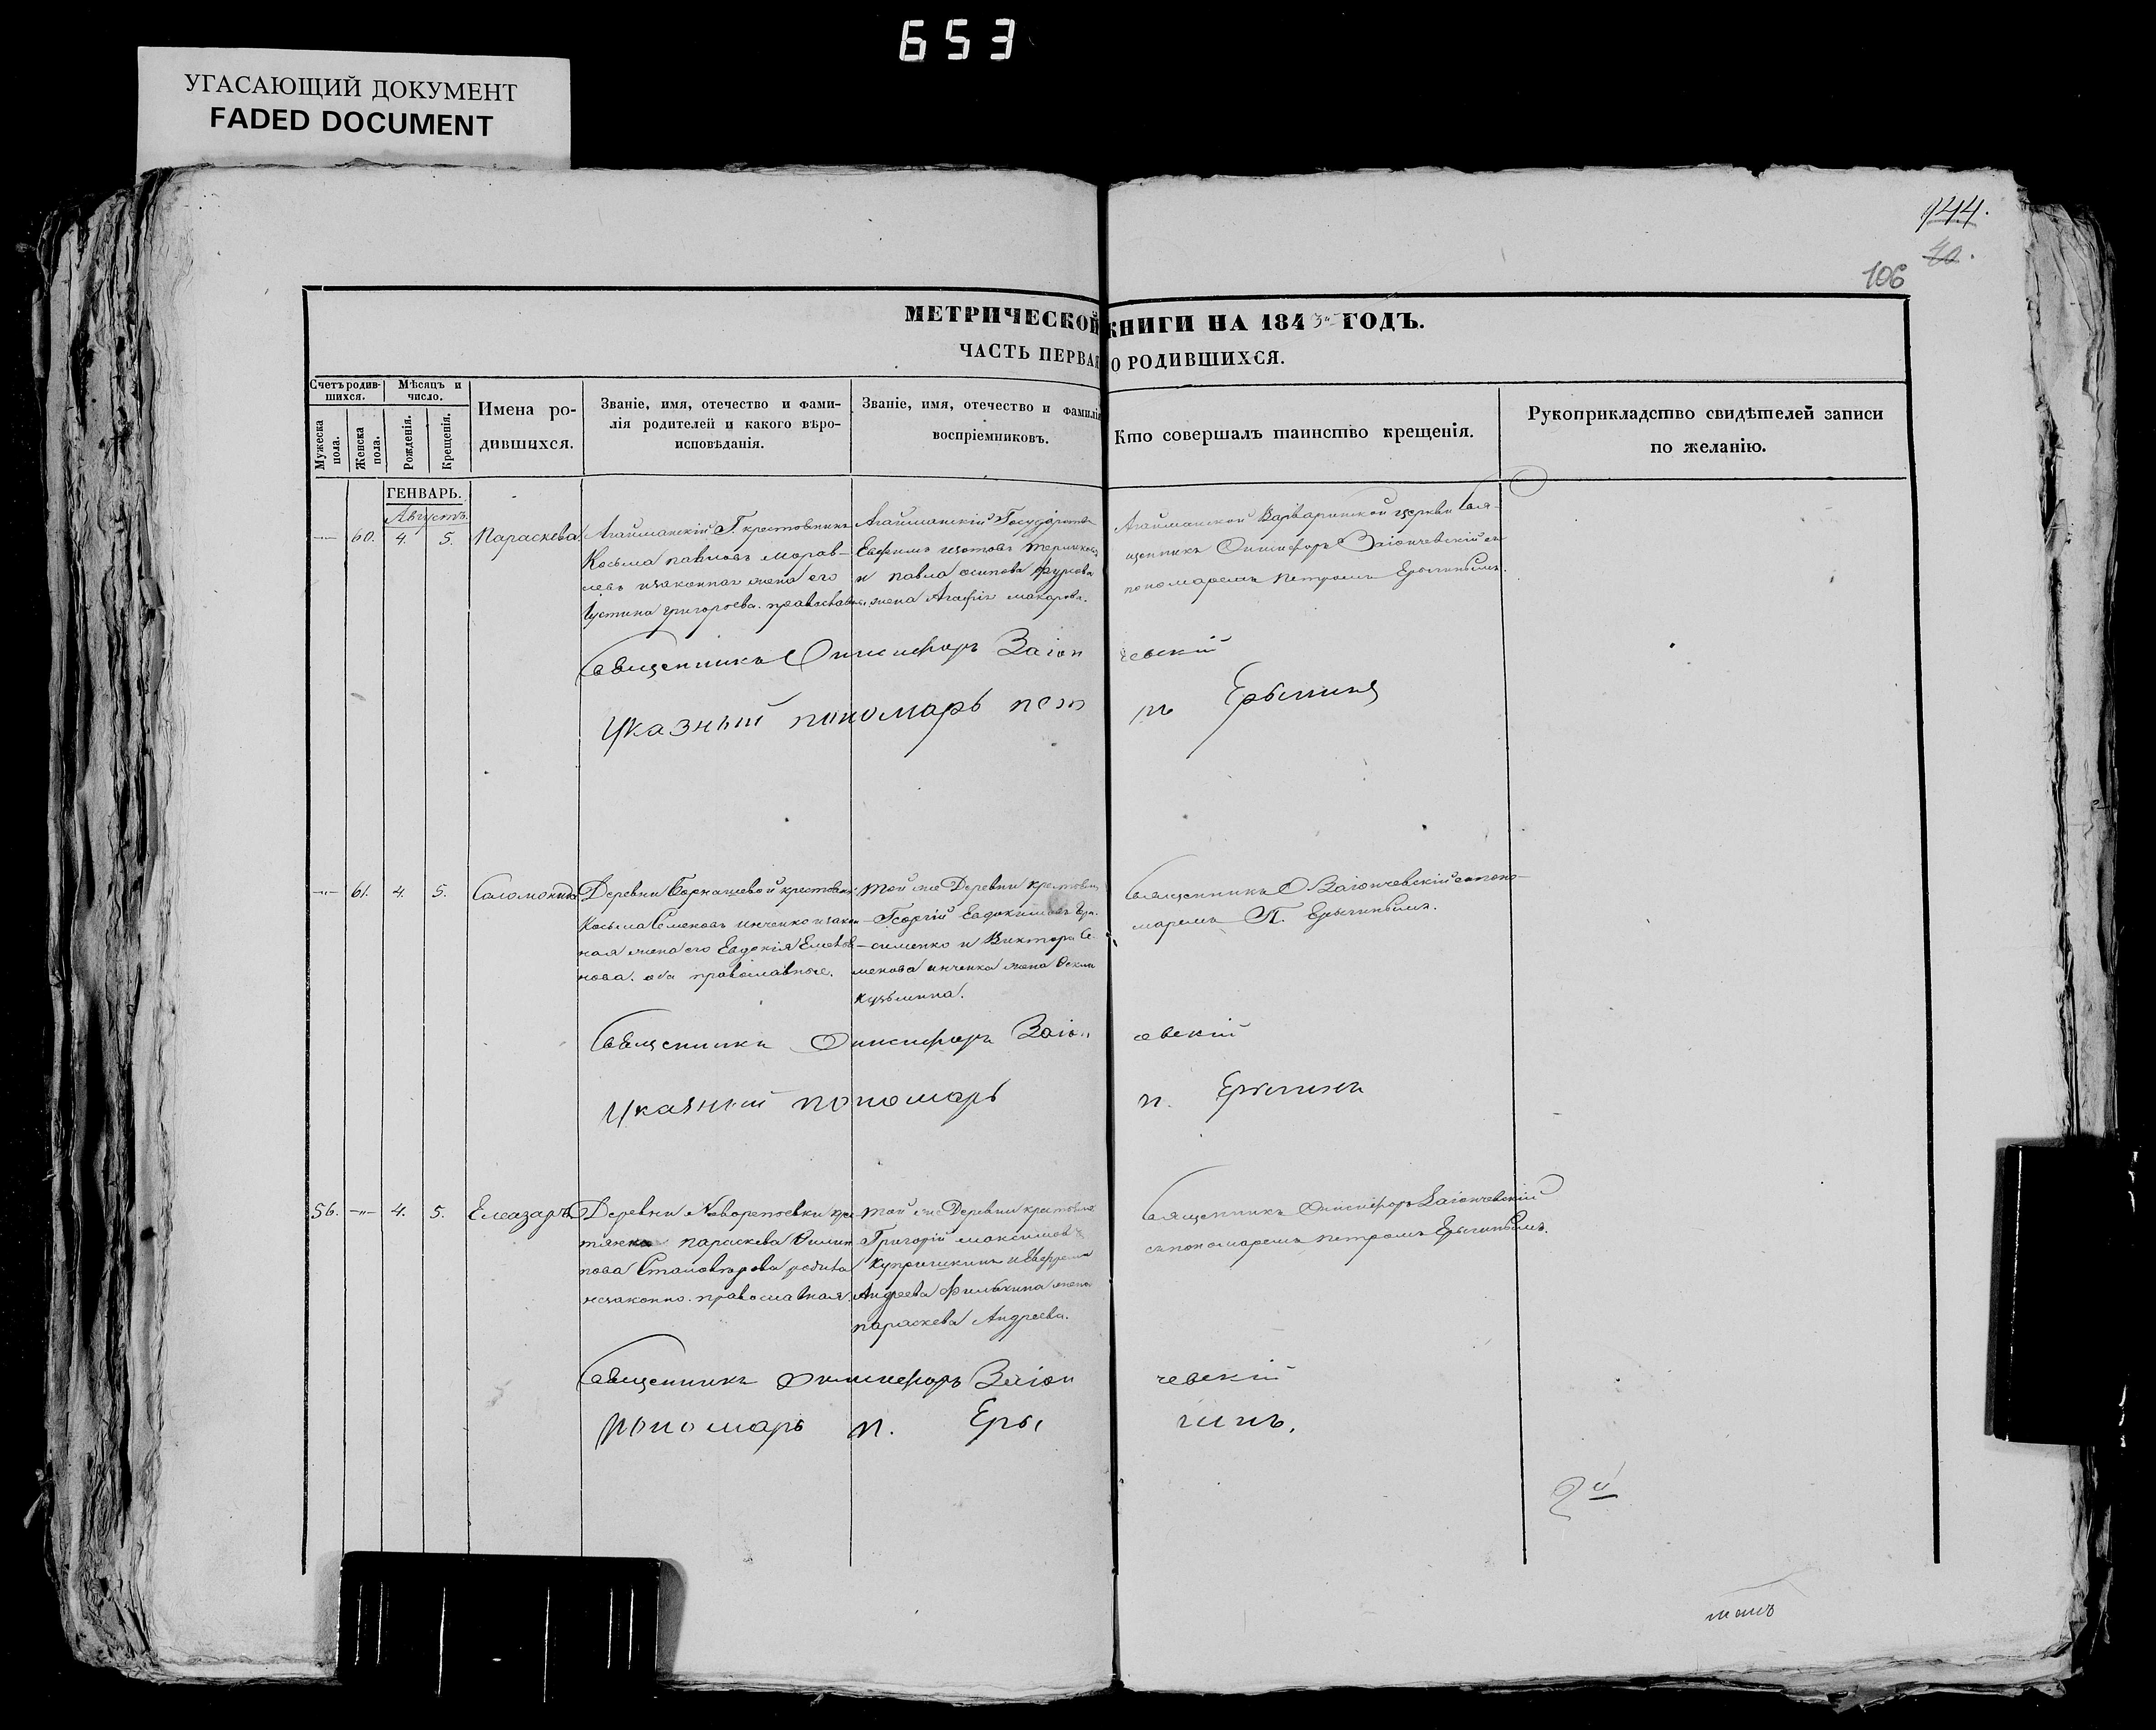 653
УГАСАЮЩИЙ ДОКУМЕНТ
FADED DOCUMENT
944.
40.
106
МЕТРИЧЕСКОЙ КНИГИ НА 1843й ГОДЪ.
ЧАСТЬ ПЕРВАЯ О РОДИВШИХСЯ.
Счетъ родив-
шихся.
Мужеска пола.
Женска пола.
Мѣсяцъ и
число.
Рожденія.
Крещенія.
Имена ро-
дившихся.
Званіе, имя, отечество и фами-
лія родителей и какого вѣро-
исповѣданія.
Званіе, имя, отечество и фамилія
воспріемниковъ.
Кто совершалъ таинство крещенія.
Рукоприкладство свидѣтелей записи
по желанію.
ГЕНВАРЬ.
Августъ.
— 60. 4. 5. Параскева
Агайманскій Г. крестьянинъ
Косьма павловъ Морав-
левъ изаконная жена его
Иустина григорьева. православные
Агайманскій Государств
Евфимъ изотовъ
и павла осипова жена Агафія макарова.
Агайманской Варваринской церкви Свя-
щенникъ Онисифоръ Заіончевскій съ
пономаремъ петромъ Ерыгинымъ.
Священникъ Онисифоръ Заіончевскій
Указный пономарь петръ Ерыгинъ
—"— 61. 4. 5. Саломонида
Деревни крестьян
Косьма Семеновъ инченко изакон
ная жена его Евдокія
нова. оба православные.
той же Деревни крестьян
Георгій Евдокимовъ Гра-
сименко и Виктора Се-
менова инченка жена
кузьмина.
Священникъ О Заіончевскій споно-
маремъ П. Ерыгинымъ.
Священникъ Онисифоръ Заіончевскій
Указный пономарь п. Ерыгинъ
56. —"— 4. 5. Елеазаръ
Деревни Новорепьевки кре
тянка параскева Филип
пова родила
незаконно. православная
той же Деревни крестьян
Григорій максимовъ
Купришкинъ и Евфрема
Андреева Филькина жена
параскева Андреева.
Священникъ Онисифоръ Заіончевскій
съ пономаремъ петромъ Ерыгинымъ.
Священникъ Онисифоръ Заіончевскій
пономарь п. Ерыгинъ.